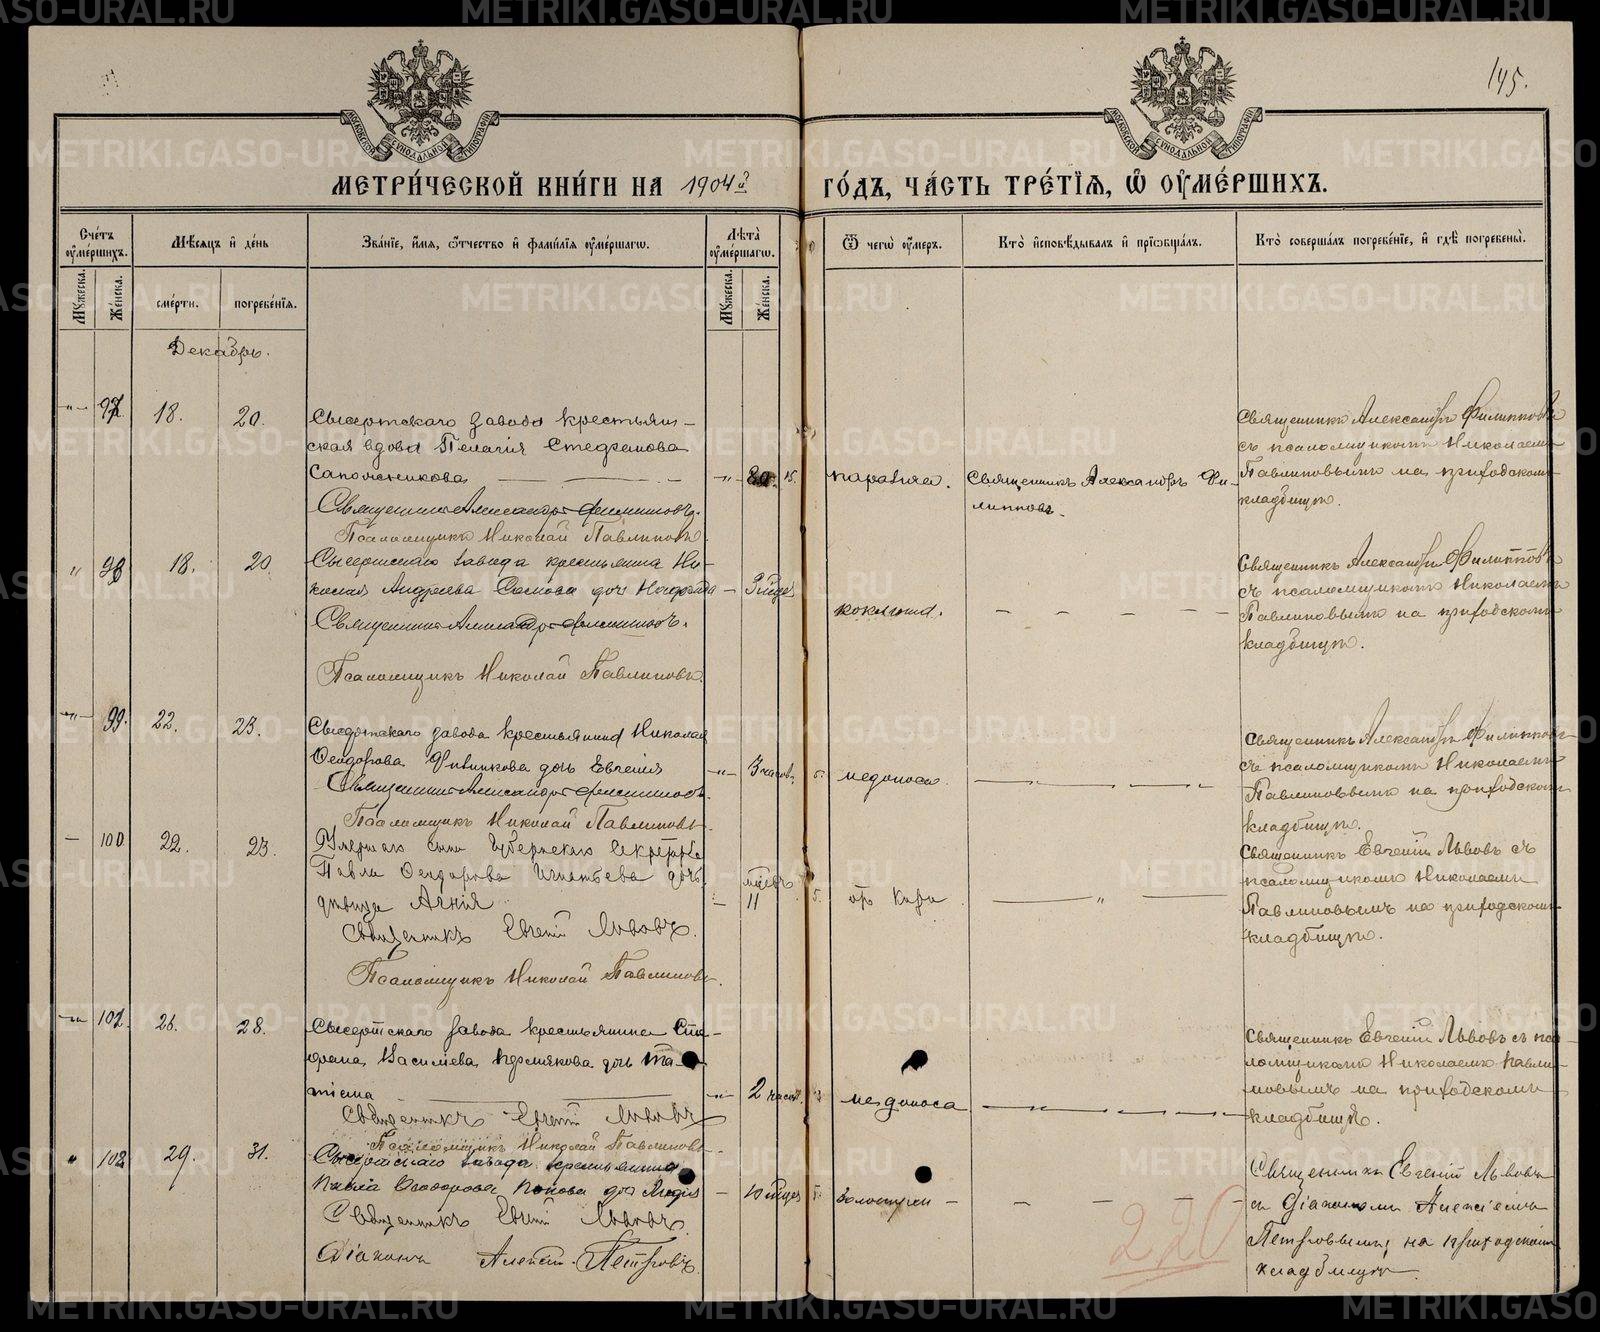 145.
МЕТРИ́ЧЕСКОЙ КНИ́ГИ НА 1904й ГО́ДЪ, ЧА́СТЬ ТРЕ́ТІѦ, Ѿ ОУ҆МЕ́РШИХЪ.
Сче́тъ оу҆ме́ршихъ.
Мꙋ́жеска.
Же́нска.
Мѣ́сѧцъ и҆ де́нь
сме́рти.
погребе́нїѧ.
Зва́нїе, и҆́мѧ, ѻ҆́тчество и҆ фами́лїѧ оу҆ме́ршагѡ.
Лѣта̀ оу҆ме́ршагѡ.
Мꙋ́жеска.
Же́нска.
Ѿ чегѡ̀ оу҆́меръ.
Кто̀ и҆сповѣ́дывалъ и҆ прїѡбща́лъ.
Кто̀ соверша́лъ погребе́нїе, и҆ гдѣ̀ погребены̀.
Декабрь.
97. 18. 20.
Сысертскаго завода крестьян-
ская вдова Пелагія Стефанова
Сапожникова
Священникъ Александръ Филипповъ.
Псаломщикъ Николай Павлиновъ
паралича.
Священникъ Александръ Фи-
липповъ.
Священникъ Александръ Филипповъ
съ псаломщикомъ Николаемъ
Павлиновымъ на приходскомъ
кладбищѣ.
98 18. 20
Сысертскаго завода крестьянина Ни-
колая Андреева дочь
Священникъ Александръ Филипповъ.
Псаломщикъ Николай Павлиновъ.
коклюша.
Священникъ Александръ Филипповъ
съ псаломщикомъ Николаемъ
Павлиновымъ на приходскомъ
кладбищѣ.
99. 22. 23.
Сысертскаго завода крестьянина Николая
Ѳеодорова дочь Евгенія
3 часов.
Священникъ Александръ Филипповъ.
Псаломщикъ Николай Павлиновъ.
недоноса
Священникъ Александръ Филипповъ
съ псаломщикомъ Николаемъ
Павлиновымъ на приходскомъ
кладбищѣ.
100 22. 23.
Умершаго сына Губернскаго Секретаря
Павла Ѳеодорова Игнатьева дочь,
дѣвица Агнія
11
Священникъ Евгеній Львовъ.
Псаломщикъ Николай Павлиновъ.
отъ кори
Священникъ Евгеній Львовъ съ
псаломщикомъ Николаемъ
Павлиновымъ на приходскомъ
кладбищѣ.
101. 26. 28.
Сысертскаго завода крестьянина Сте-
фана Васильева дочь Та-
тіана
2 часов.
Священникъ Евгеній Львовъ
Псаломщикъ Николай Павлиновъ
недоноса
Священникъ Евгеній Львовъ съ пса-
ломщикомъ Николаемъ Павли-
новымъ на приходскомъ
кладбищѣ.
102 29. 31.
Сысертскаго завода крестьянина
Павла Ѳеодорова Попова дочь Лидія
Священникъ Евгеній Львовъ.
Діаконъ Алексій Петровъ.
Священникъ Евгеній Львовъ
съ Діакономъ Алексіемъ
Петровымъ, на приходскомъ
кладбищѣ.
220
METRIKI.GASO-URAL.RU